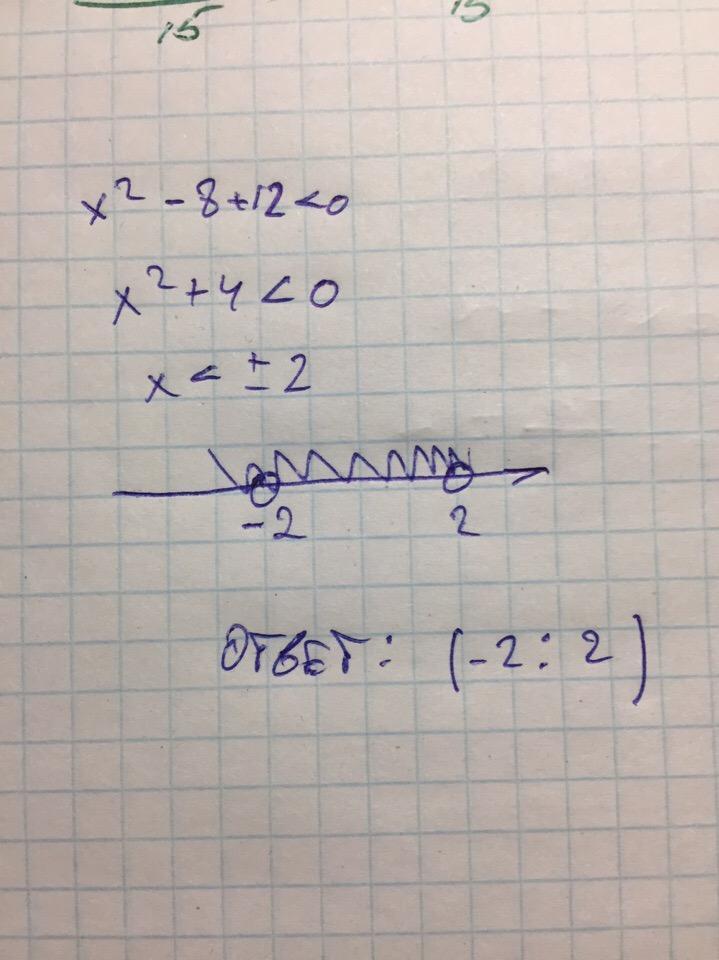 15 15
x² - 8 + 12 < 0
x² + 4 < 0
x < ± 2
-2 2
ОТВЕТ: (-2 : 2)